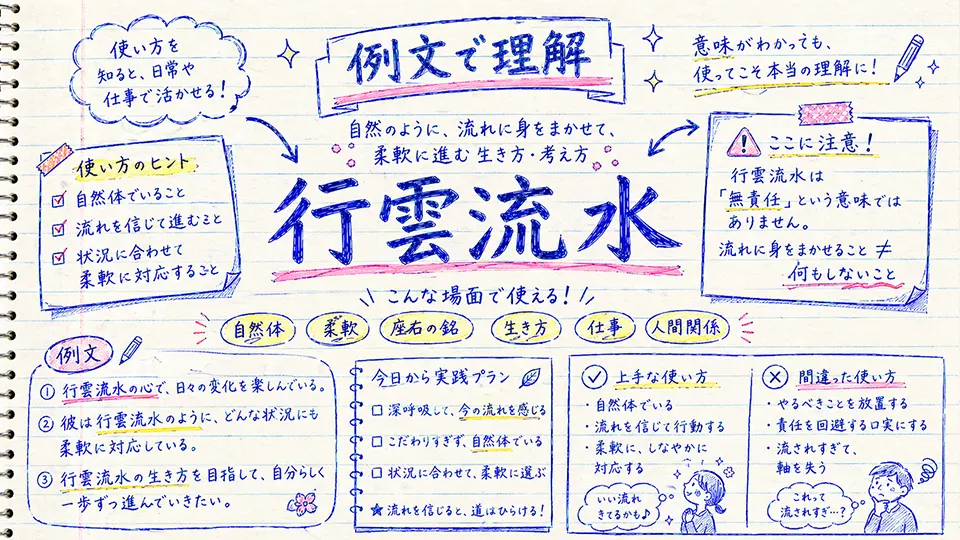 使い方を
知ると、日常や
仕事で活かせる!
例文で理解
意味がわかっても、
使ってこそ本当の理解に!
自然のように、流れに身をまかせて、
柔軟に進む 生き方・考え方
行雲流水
使い方のヒント
自然体でいること
流れを信じて進むこと
状況に合わせて
柔軟に対応すること
ここに注意!
行雲流水は
「無責任」という意味では
ありません。
流れに身をまかせること ≠
何もしないこと
こんな場面で使える!
自然体 柔軟 座右の銘 生き方 仕事 人間関係
例文
① 行雲流水の心で、日々の変化を楽しんでいる。
② 彼は行雲流水のように、どんな状況にも
柔軟に対応している。
③ 行雲流水の生き方を目指して、自分らしく
一歩ずつ進んでいきたい。
今日から実践プラン
□ 深呼吸して、今の流れを感じる
□ こだわりすぎず、自然体でいる
□ 状況に合わせて、柔軟に選ぶ
★ 流れを信じると、道はひらける!
上手な使い方
・自然体でいる
・流れを信じて行動する
・柔軟に、しなやかに
対応する
いい流れ
きてるかも♪
間違った使い方
・やるべきことを放置する
・責任を回避する口実にする
・流されすぎて、
軸を失う
これって
流されすぎ…?